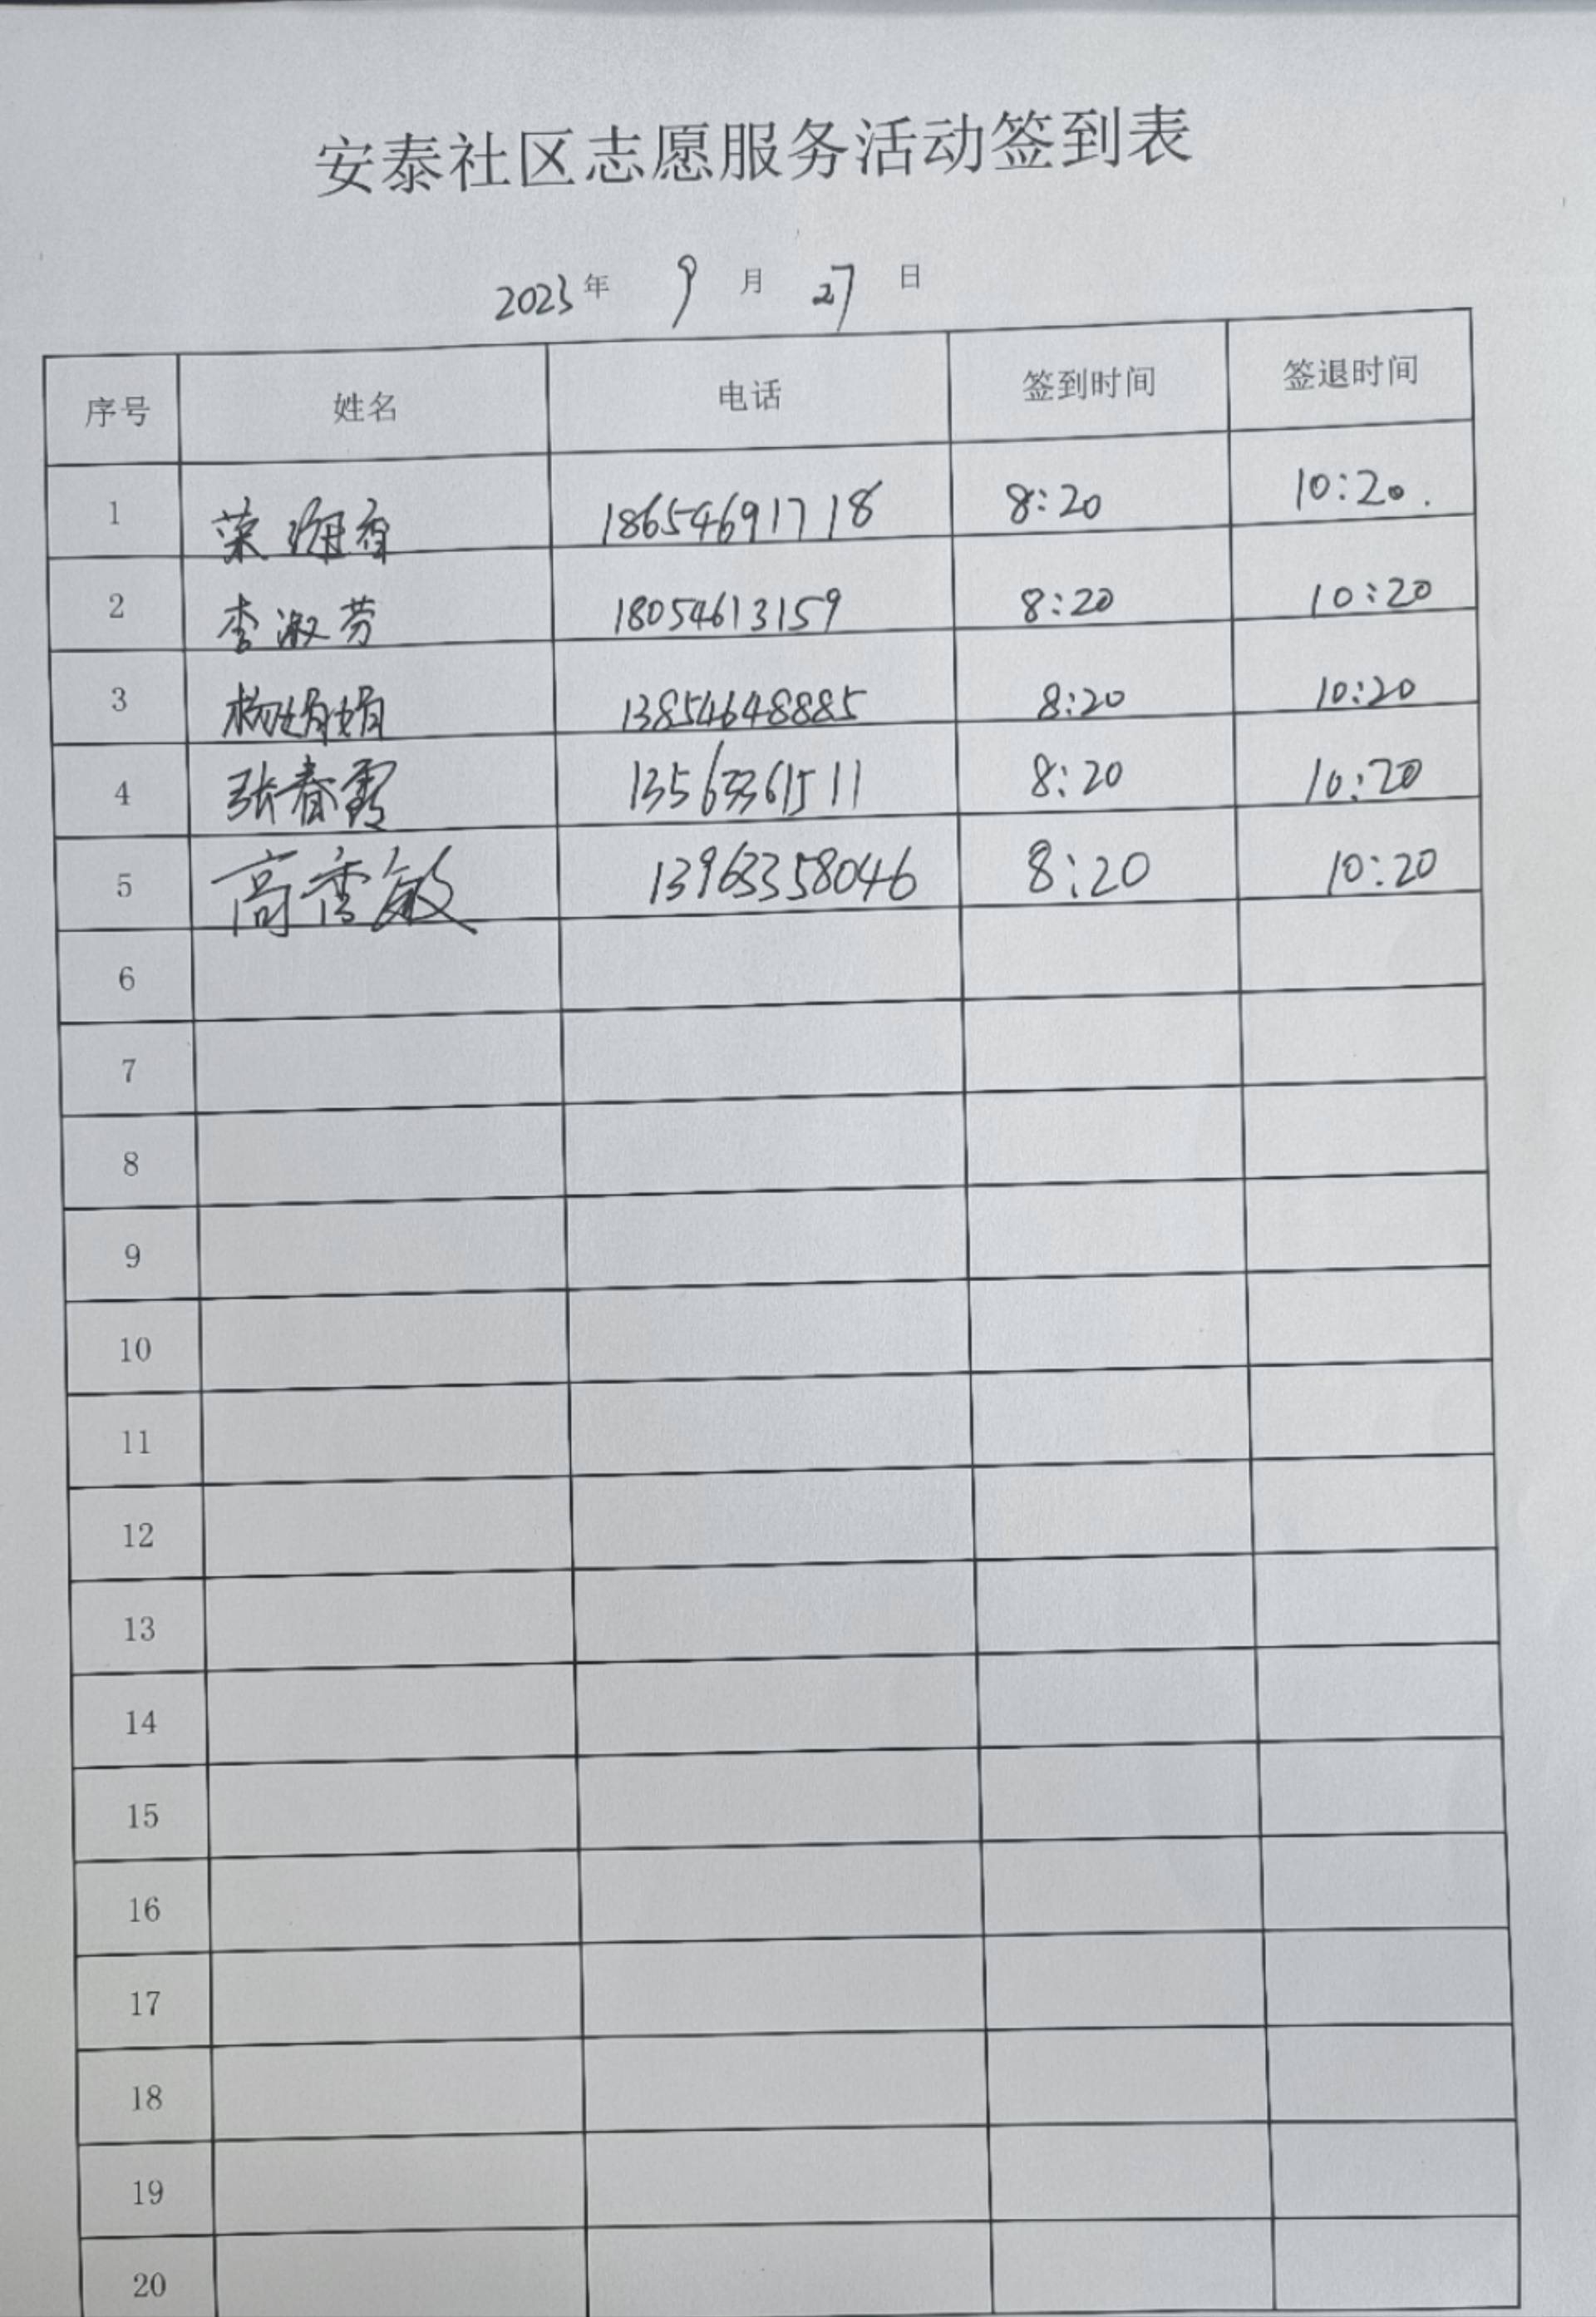 安泰社区志愿服务活动签到表
2023年 9月 27日
序号 姓名 电话 签到时间 签退时间
1 荣 18654691718 8:20 10:20.
2 李淑芳 18054613159 8:20 10:20
3 杨娟娟 13854648885 8:20 10:20
4 张春霞 13563361511 8:20 10:20
5 高秀敏 13963358046 8:20 10:20
6
7
8
9
10
11
12
13
14
15
16
17
18
19
20